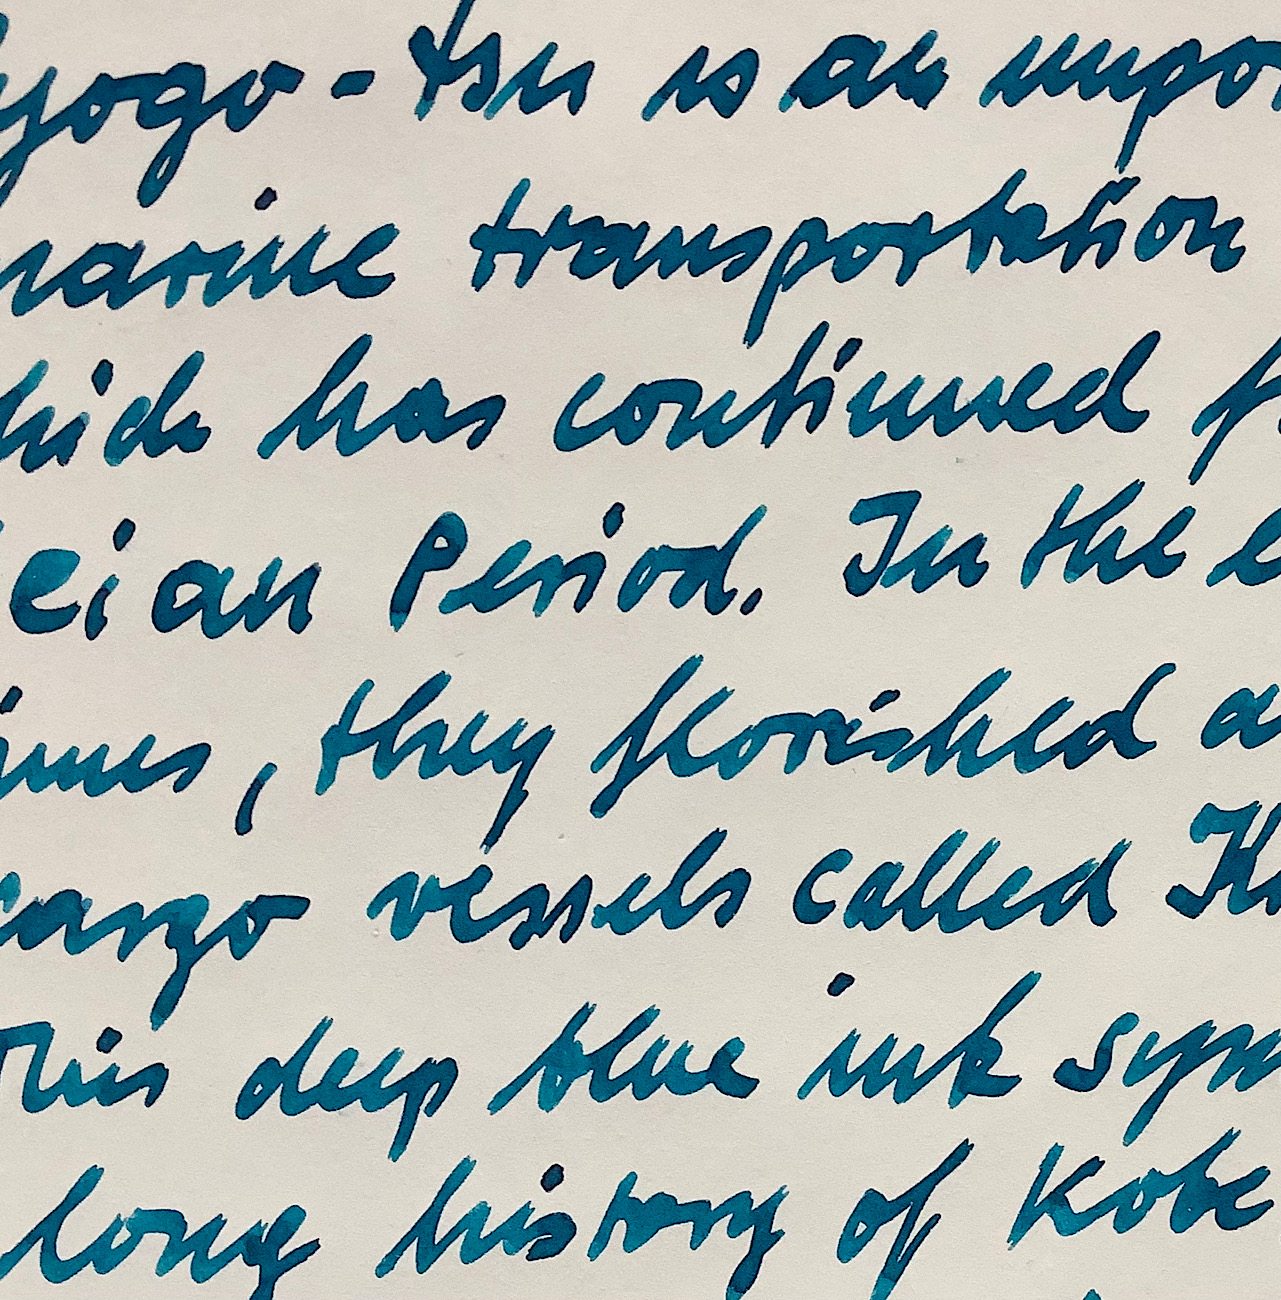 yogo-tsu is an impor
marine transportation
hich has continued f
eian Period. In the e
imes, they florished a
cargo vessels called Ki
This deep blue ink sym
long history of Kobe